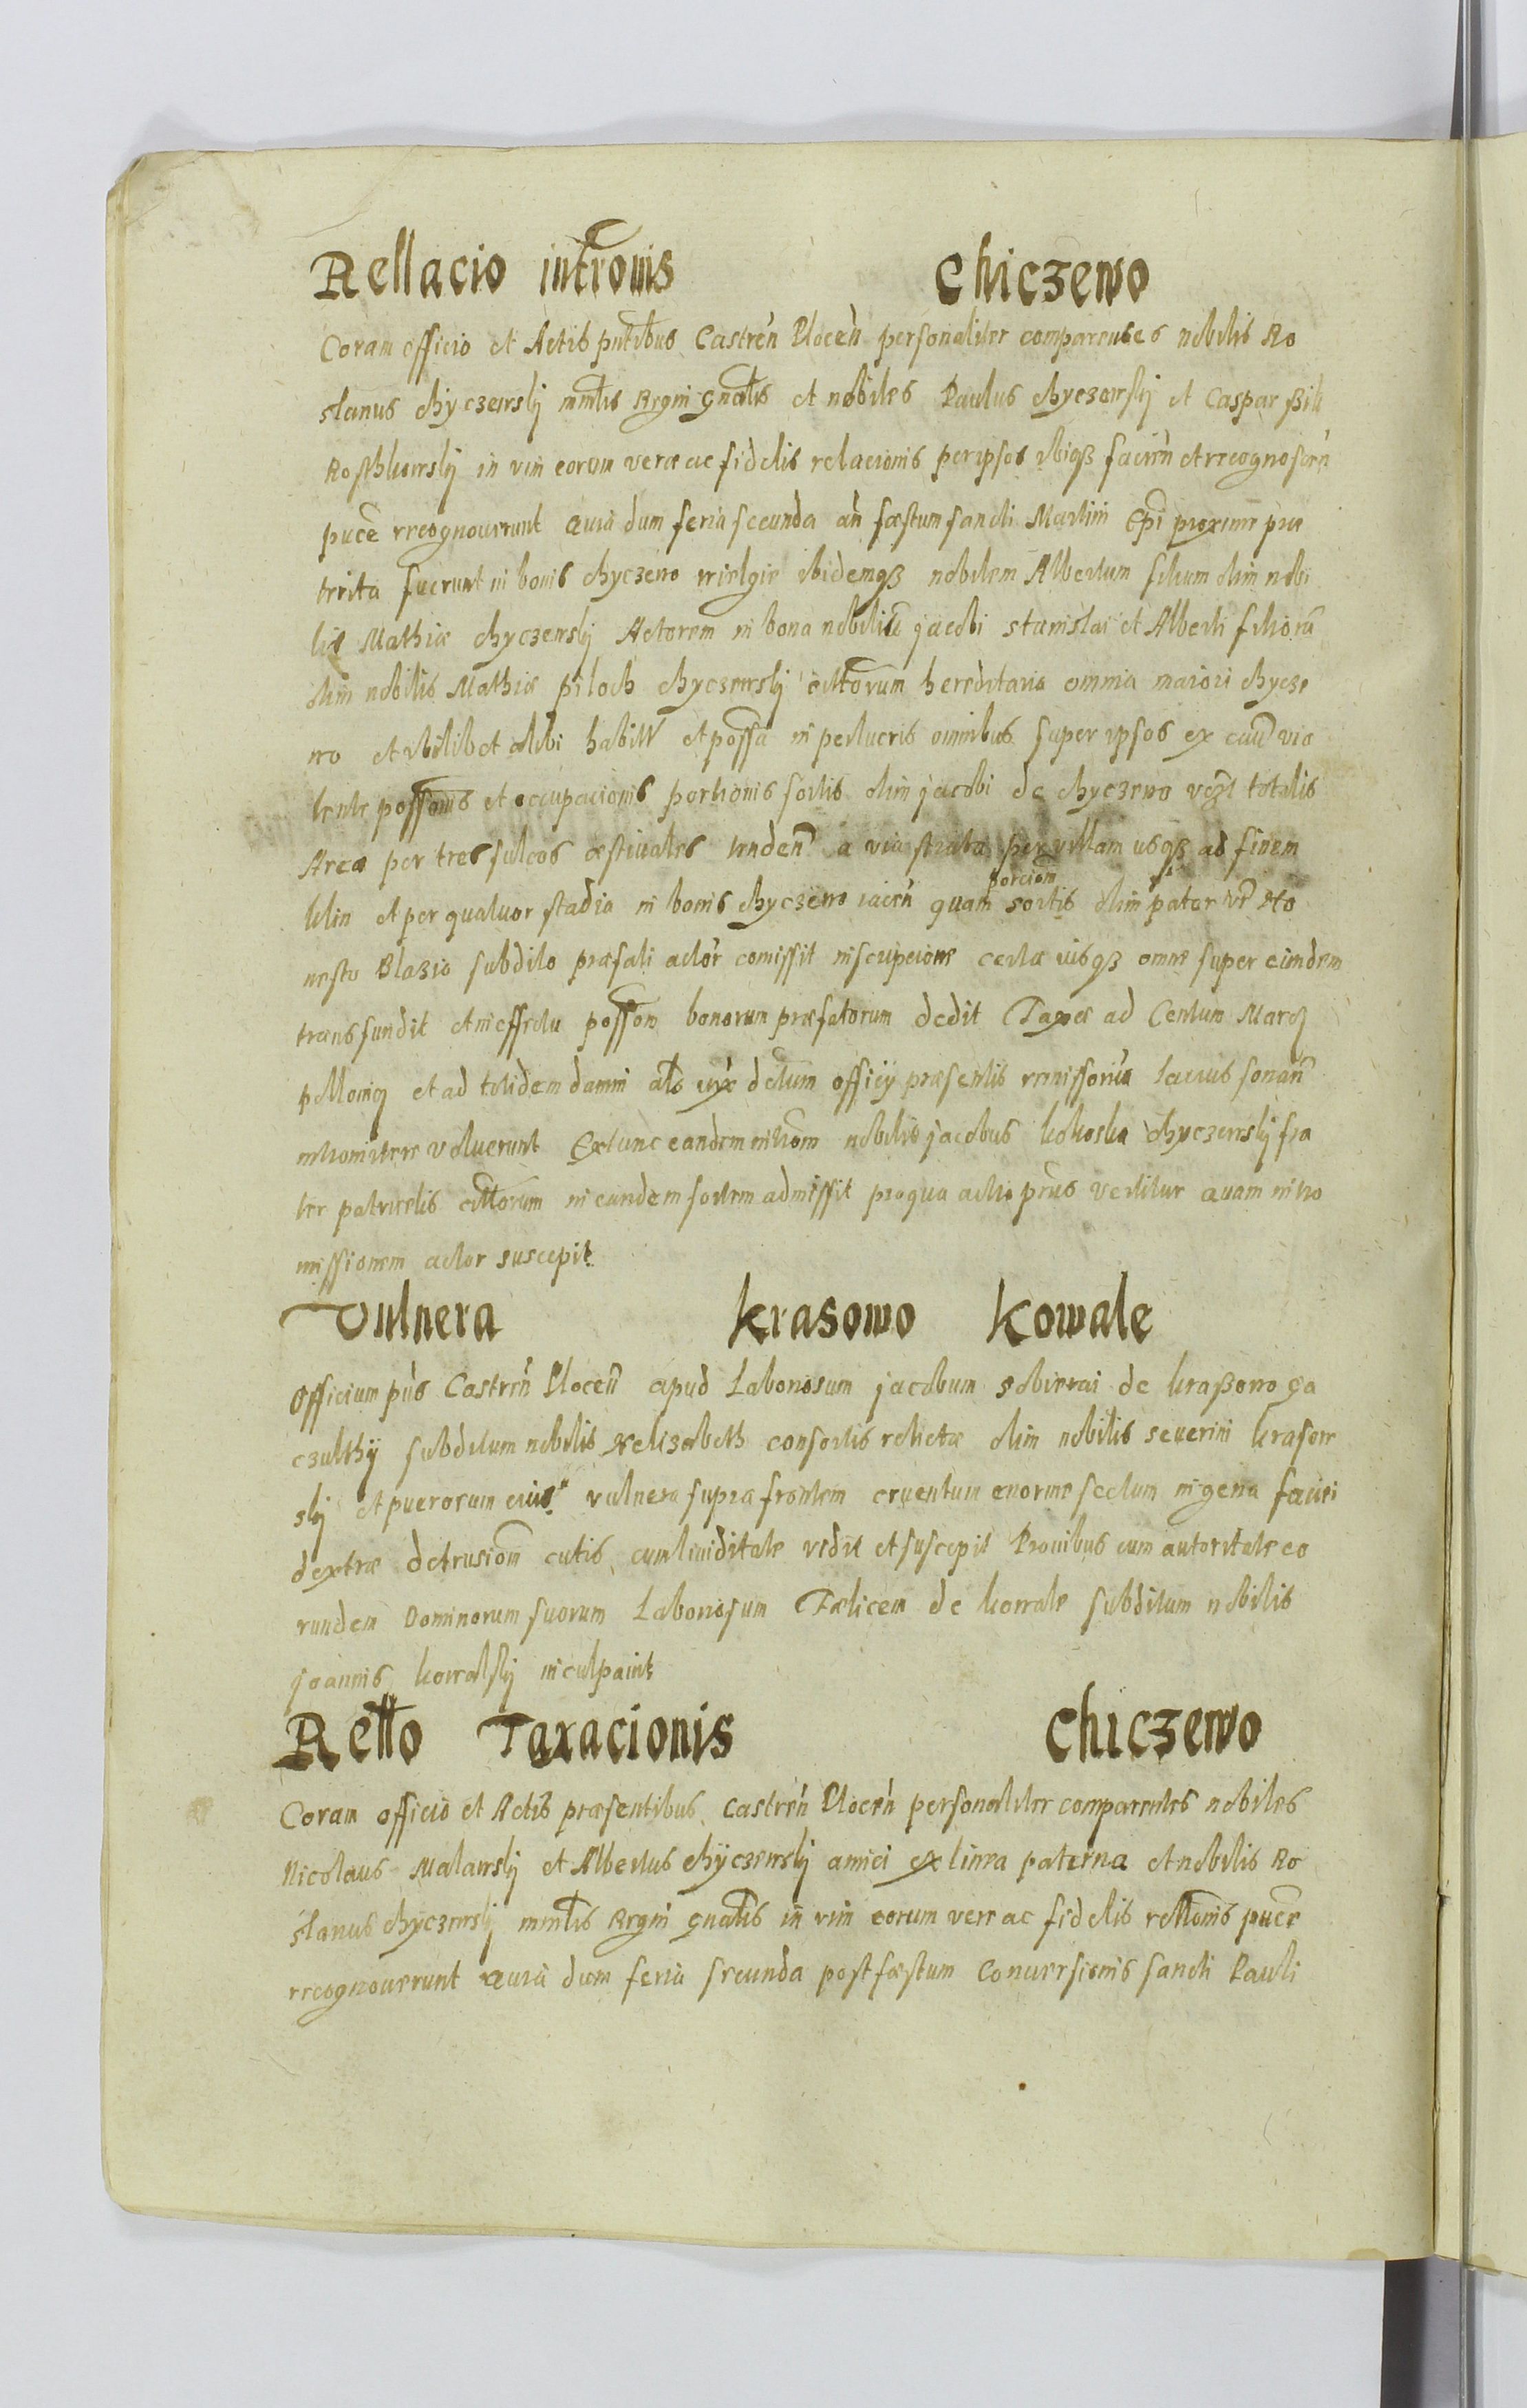 Rellacio intromis Chiczewo
Coram officio et Actis pntibus Castren Plocen personaliter comparentes nobilis Ro
slanus chyczewskj mntlis Regni gnalis et nobiles Paulus chyczewskj et Caspar
Rosthkowskj in vim eorum veræ ac fidelis relacionis per ipsos ibiqȝ facien et recognoscen
puce recognoverunt quia dum feria secunda an fæstum sancti Martini Epi proxime præ
terita fuerunt in bonis chyczewo wielgie ibidemqȝ nobilem Albertum filium olim nobi
lis Mathiæ chyczewskj Actorem in bona nobiliu jacobi stanislai et Alberti filioru
olim nobilis Mathiæ piloch chyczewskj cittorum hereditaria omnia maiori chycze
wo et ubilibet alibi habitt et possa in perlucris omnibus super ipsos ex cau vio
lente possonis et occupacionis portionis sortis olim jacobi de chyczewo vczt totalis
Area per tres sulcos æstivales tenden a via strata per villam usqȝ ad finem
klin et per quatuor stadia in bonis chyczewo iacen quam porciom sortis olim pater ir Ho
nesto Blazio subdito præfati actor comissit inscripcione certa iusqȝ omne super eundem
transfundit et in effectu posson bonorum præfatorum dedit Taxæ ad Centum Marcq
pollonicq et ad totidem damni als iux dctum officy præsentis remissoriu lacius sonan
intromittere voluerunt Extunc eandem introm nobilis jacobus kokoska chyczewskj fra
ter patruelis cittorum in eandem sortem admissit pro qua actio pns vertitur quam intro
missionem actor suscepit
Vulnera Krasowo Kowale
Officium pns Castren Plocen apud Laboriosum jacobum sobierai de kraßowo ga
czulthy subditum nobilis Helizabeth consortis relictæ olim nobilis severini krasow
skj et puerorum eius vulnera supra frontem cruentum enorme sectum in gena fauci
dextræ detrusiom cutis cum liuiditate vidit et suscepit Pro quibus cum autoritate eo
rundem Dominorum suorum Laboriosum Fælicem de kowale subditum nobilis
joannis kowalskj inculpauit
Rello Taxacionis Chiczewo
Coram officio et Actis præsentibus Castren Plocen personaliter comparentes nobiles
Nicolaus Malawskj et Albertus chyczewskj amici ex linea paterna et nobilis Ro
slanus chyczewskj mntlis Regni gnalis in vim eorum vere ac fidelis rellonis puce
recognoverunt quia dum feria secunda post fæstum Conversionis sancti Pauli